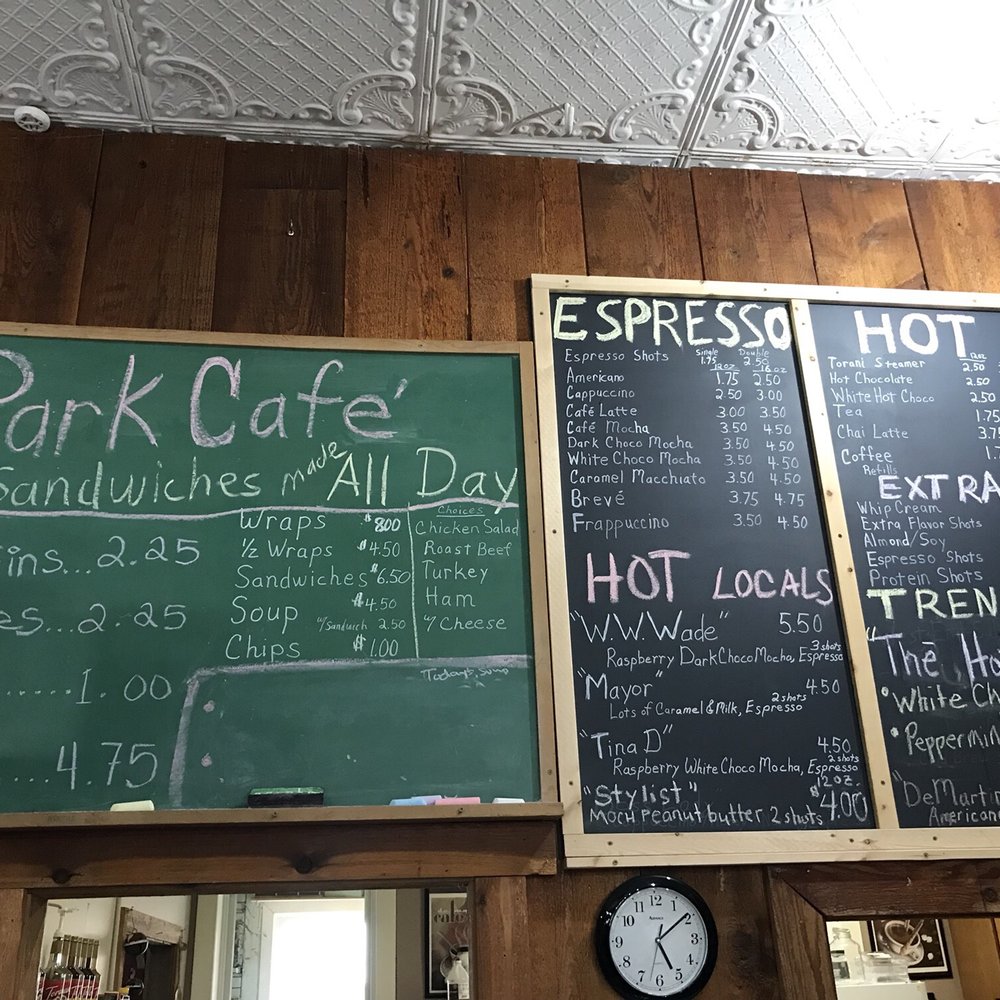 Park Café
Sandwiches made All Day
ins...2.25
es...2.25
......1.00
....4.75
Wraps $8.00
1/2 Wraps $4.50
Sandwiches $6.50
Soup $4.50
w/Sandwich 2.50
Chips $1.00
Choices
Chicken Salad
Roast Beef
Turkey
Ham
w/ Cheese
Today's Soup
ESPRESSO
Single Double
Espresso Shots 1.75 2.50
12oz 16oz
Americano 1.75 2.50
Cappuccino 2.50 3.00
Café Latte 3.00 3.50
Café Mocha 3.50 4.50
Dark Choco Mocha 3.50 4.50
White Choco Mocha 3.50 4.50
Caramel Macchiato 3.50 4.50
Brevé 3.75 4.75
Frappuccino 3.50 4.50
HOT LOCALS
"W.W.Wade" 5.50
3 shots
Raspberry Dark Choco Mocha, Espresso
"Mayor" 4.50
2 shots
Lots of Caramel & Milk, Espresso
"Tina D" 4.50
2 shots
Raspberry White Choco Mocha, Espresso
12oz.
"Stylist" $4.00
MOCH Peanut butter 2 shots
HOT
12oz
Torani Steamer 2.50
Hot Chocolate 2.50
White Hot Choco 2.50
Tea 1.75
Chai Latte 3.75
Coffee 1.7
Refills
EXTRA
Whip Cream
Extra Flavor Shots
Almond/Soy
Espresso Shots
Protein Shots
TREN
"The Ho
•White Ch
•Peppermin
"DeMartin
American
12
1
2
3
4
5
6
7
8
9
10
11
ADVANCE
cafe